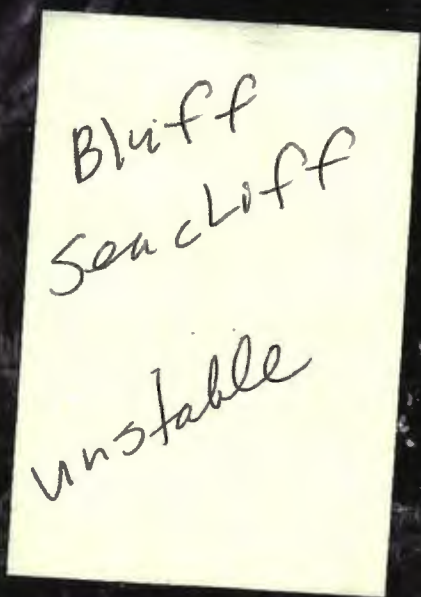 Bluff
Seacliff
unstable